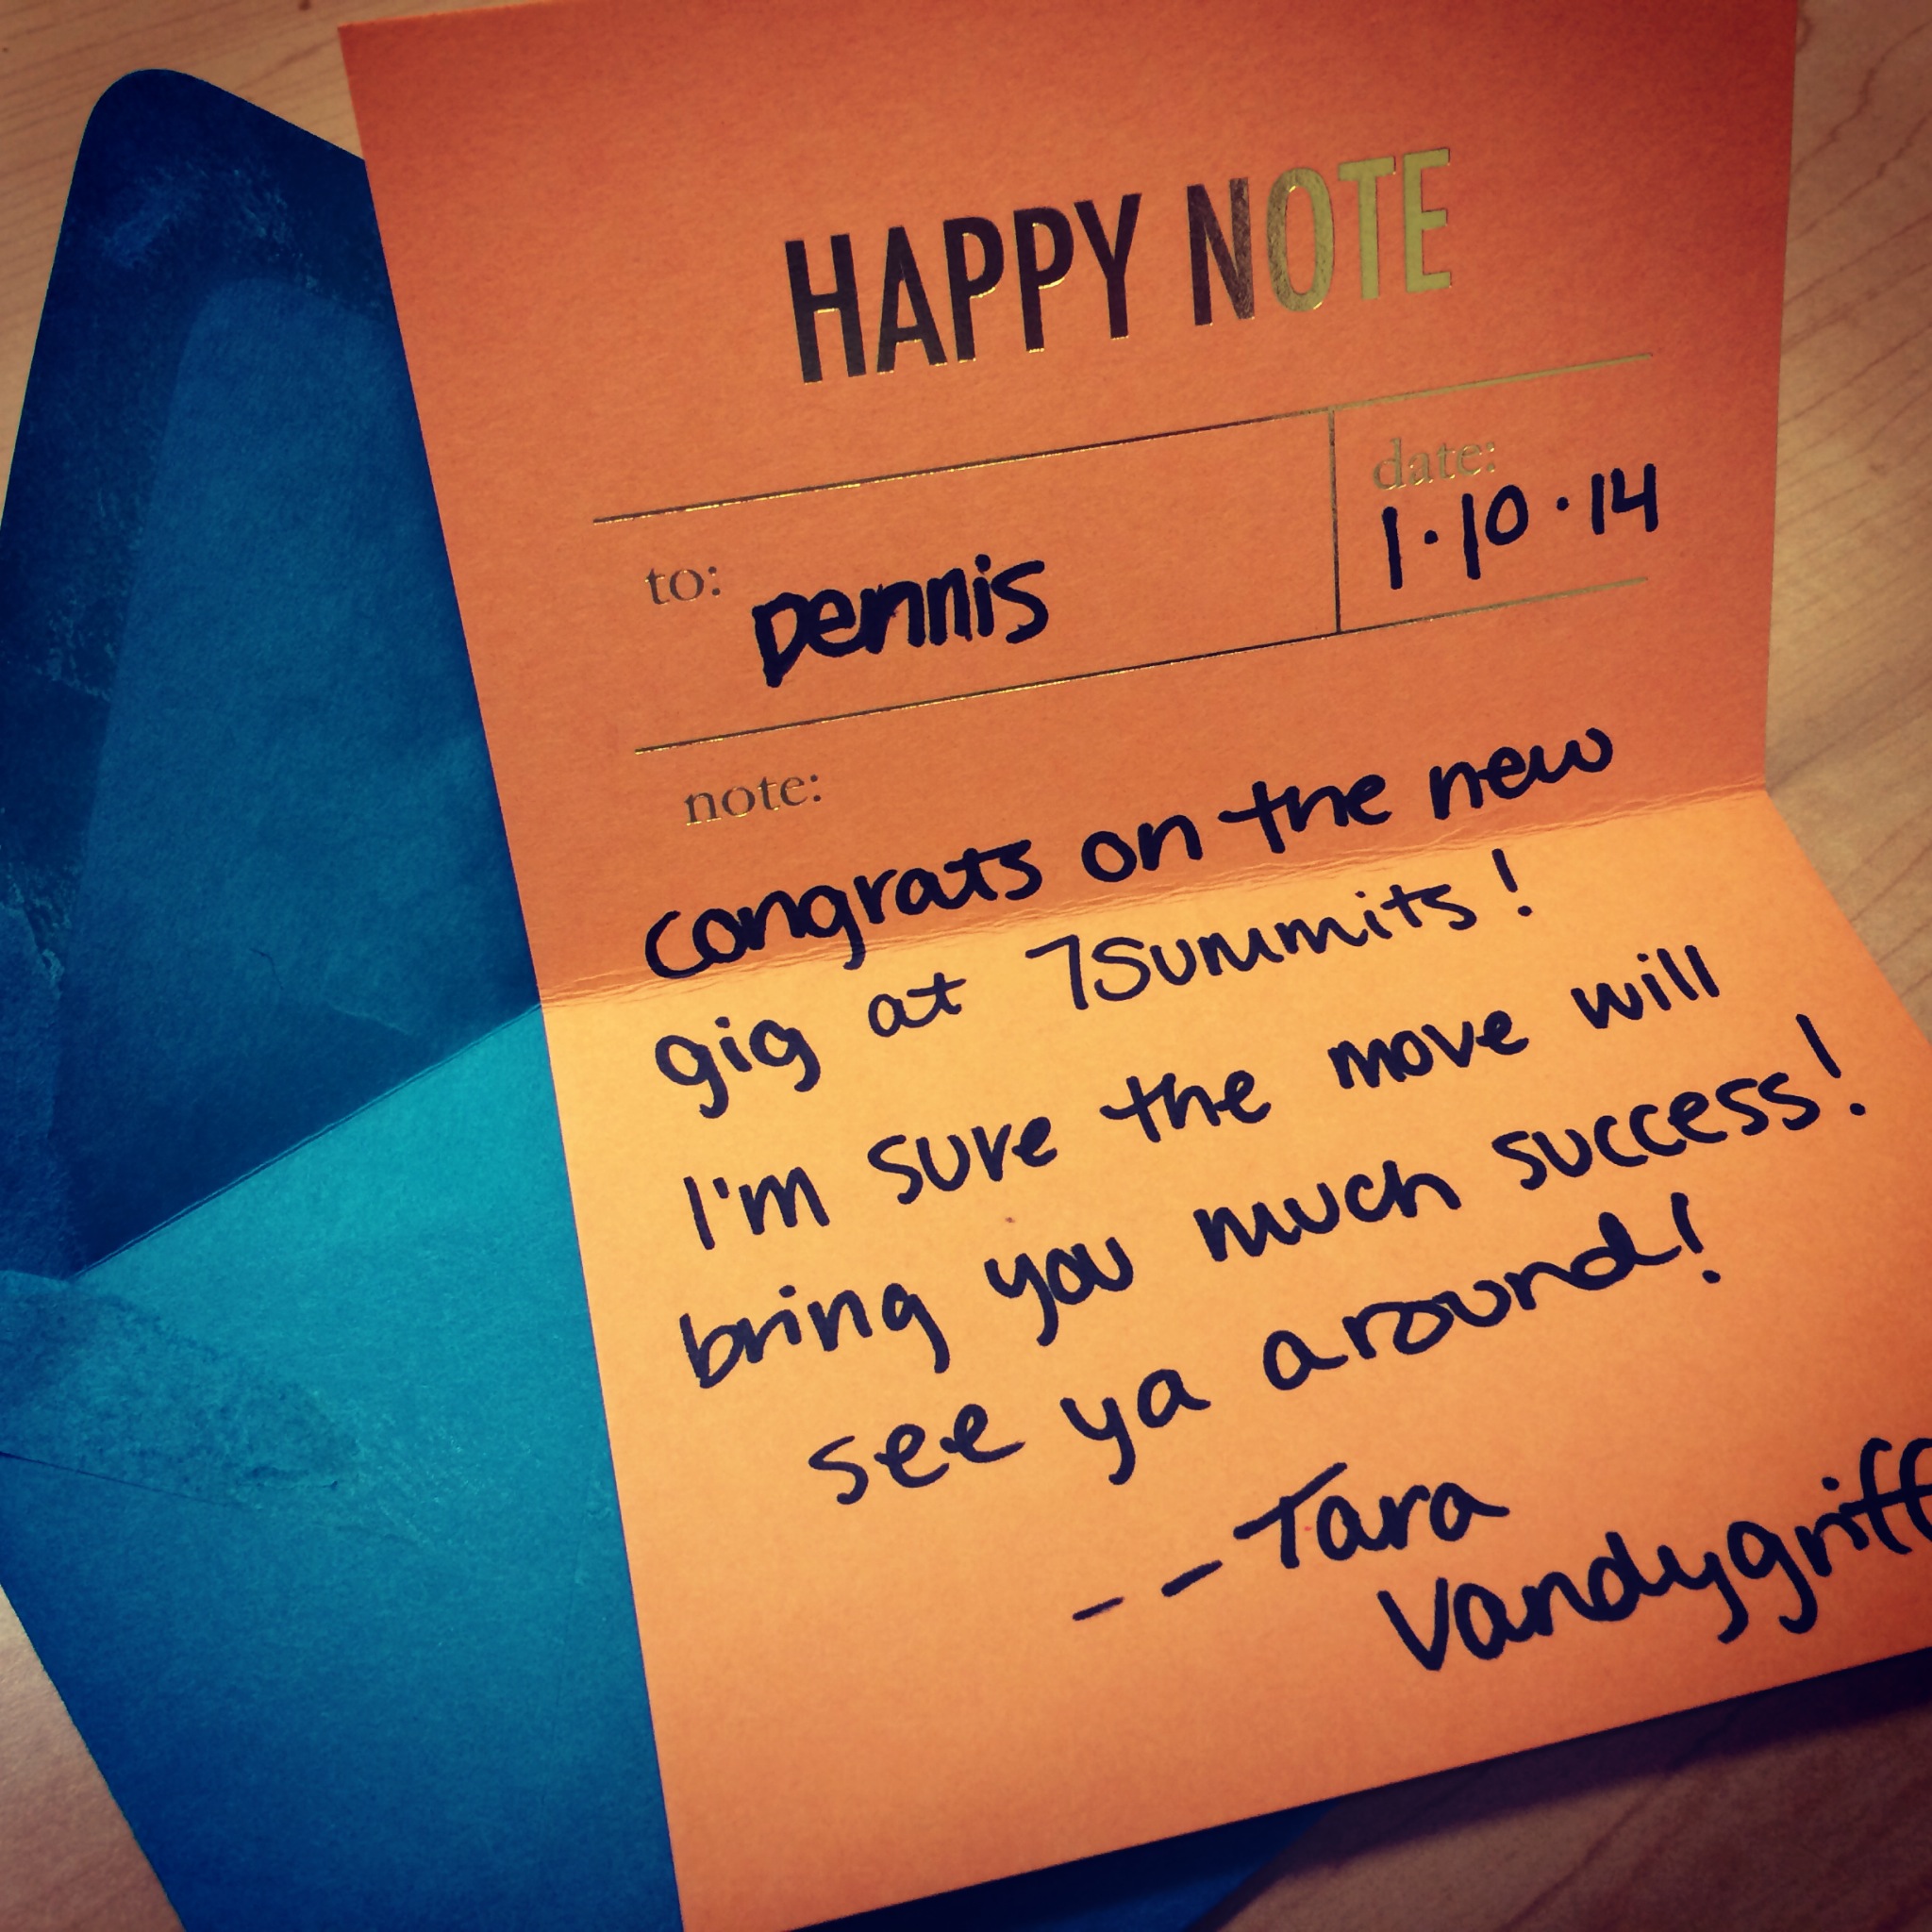 HAPPY NOTE
to: Dennis
date: 1.10.14
note:
congrats on the new
gig at 7Summits!
I'm sure the move will
bring you much success!
see ya around!
-- Tara
Vandygriff